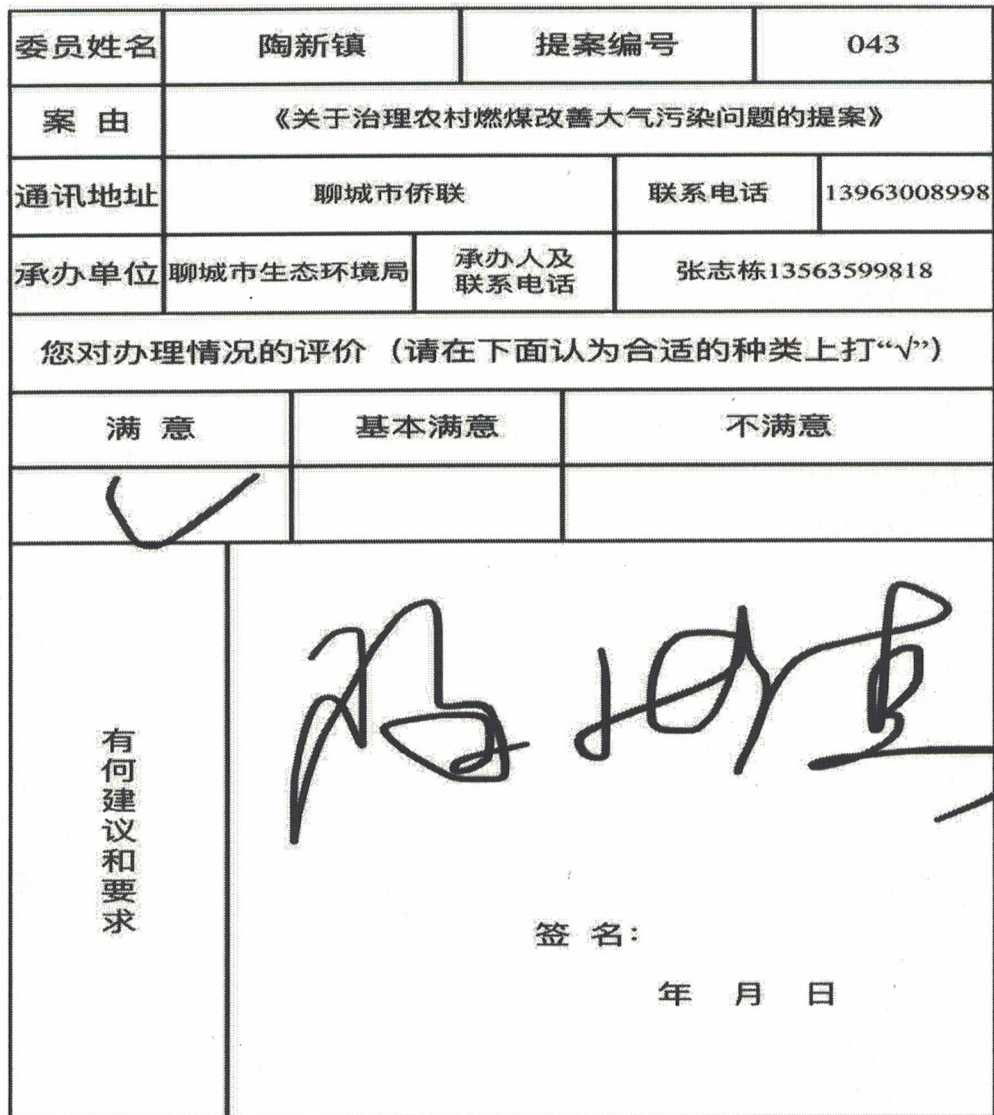 委员姓名 陶新镇 提案编号 043
案 由 《关于治理农村燃煤改善大气污染问题的提案》
通讯地址 聊城市侨联 联系电话 13963008998
承办单位 聊城市生态环境局 承办人及联系电话 张志栋13563599818
您对办理情况的评价（请在下面认为合适的种类上打“√”）
满 意 基本满意 不满意
✓
有何建议和要求
签 名：
年 月 日